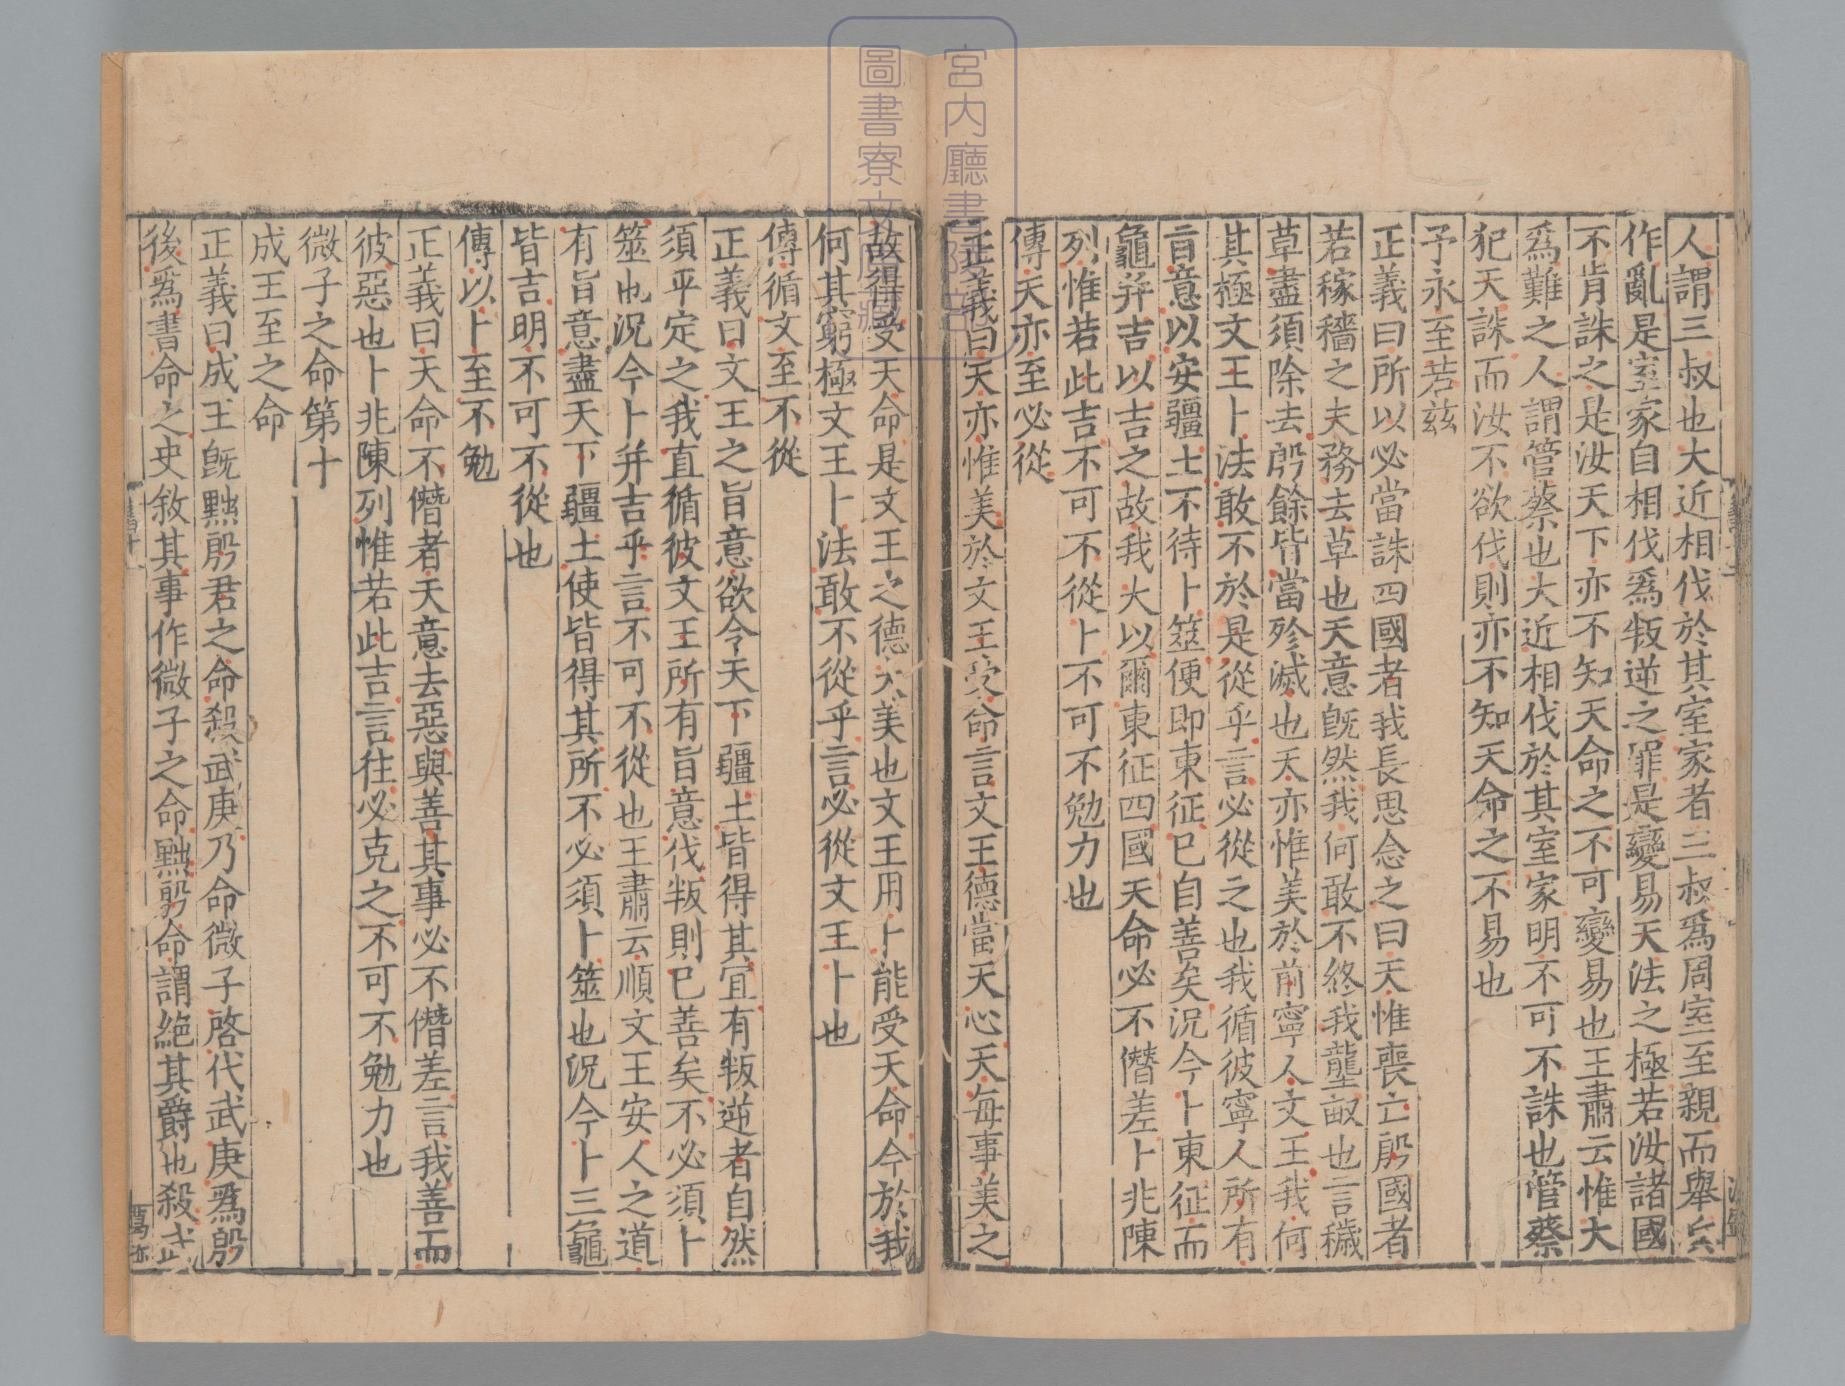 人謂三叔也大近相伐於其室家者三叔爲周室至親而舉兵
作亂是室家自相伐爲叛逆之罪是變易天法之極若汝諸國
不肯誅之是汝天下亦不知天命之不可變易也王肅云惟大
爲難之人謂管蔡也大近相伐於其室家明不可不誅也管蔡
犯天誅而汝不欲伐則亦不知天命之不易也
予永至若兹
正義曰所以必當誅四國者我長思念之曰天惟喪亡殷國者
若稼穡之夫務去草也天意旣然我何敢不終我壟畝也言穢
草盡須除去殷餘皆當殄滅也天亦惟美於前寧人文王我何
其極文王卜法敢不於是從乎言必從之也我循彼寧人所有
旨意以安疆土不待卜筮便即東征已自善矣況今卜東征而
龜并吉以吉之故我大以爾東征四國天命必不僭差卜兆陳
列惟若此吉不可不從卜不可不勉力也
傳天亦至必從
正義曰天亦惟美於文王受命言文王德當天心天每事美之
故得受天命是文王之德大美也文王用卜能受天命今於我
何其窮極文王卜法敢不從乎言必從文王卜也
傳循文至不從
正義曰文王之旨意欲令天下疆土皆得其宜有叛逆者自然
須平定之我直循彼文王所有旨意伐叛則已善矣不必須卜
筮也況今卜并吉乎言不可不從也王肅云順文王安人之道
有旨意盡天下疆土使皆得其所不必須卜筮也況今卜三龜
皆吉明不可不從也
傳以卜至不勉
正義曰天命不僭者天意去惡與善其事必不僭差言我善而
彼惡也卜兆陳列惟若此吉言往必克之不可不勉力也
微子之命第十
成王至之命
正義曰成王旣黜殷君之命殺武庚乃命微子啓代武庚爲殷
後爲書命之史敘其事作微子之命黜殷命謂絶其爵也殺武
宮内廳書陵部
圖書寮文庫藏